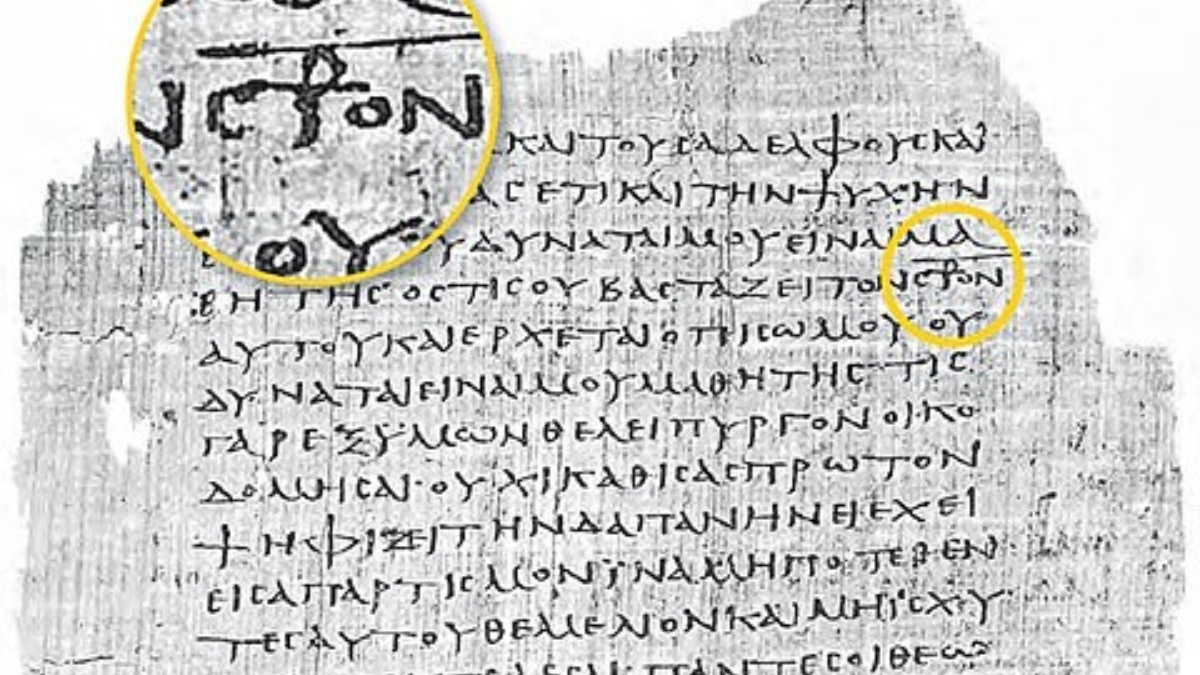 ΝϹ⳨ΟΝ
ΟΥ
ΚΑΙΤΟΥϹΑΔΕΛΦΟΥϹΚΑΙ
ΑϹΕΤΙΚΑΙΤΗΝΨΥΧΗΝ
ΥΔΥΝΑΤΑΙΜΟΥΕΙΝΑΙΜΑ
ΘΗΤΗϹΟϹΤΙϹΟΥΒΑϹΤΑΖΕΙΤΟΝϹ⳨ΟΝ
ΑΥΤΟΥΚΑΙΕΡΧΕΤΑΙΟΠΙϹΩΜΟΥΟΥ
ΔΥΝΑΤΑΙΕΙΝΑΙΜΟΥΜΑΘΗΤΗϹΤΙϹ
ΓΑΡΕΞΥΜΩΝΘΕΛΕΙΠΥΡΓΟΝΟΙΚΟ
ΔΟΜΗϹΑΙ·ΟΥΧΙΚΑΘΙϹΑϹΠΡΩΤΟΝ
ΨΗΦΙΖΕΙΤΗΝΔΑΠΑΝΗΝΕΙΕΧΕΙ
ΕΙϹΑΠΑΡΤΙϹΜΟΝΪΝΑΜΗΠΟΤΕΘΕΝ
ΤΕϹΑΥΤΟΥΘΕΜΕΛΙΟΝΚΑΙΜΗΪϹΧΥ
ΠΑΝΤΕϹΟΙΘΕΩ